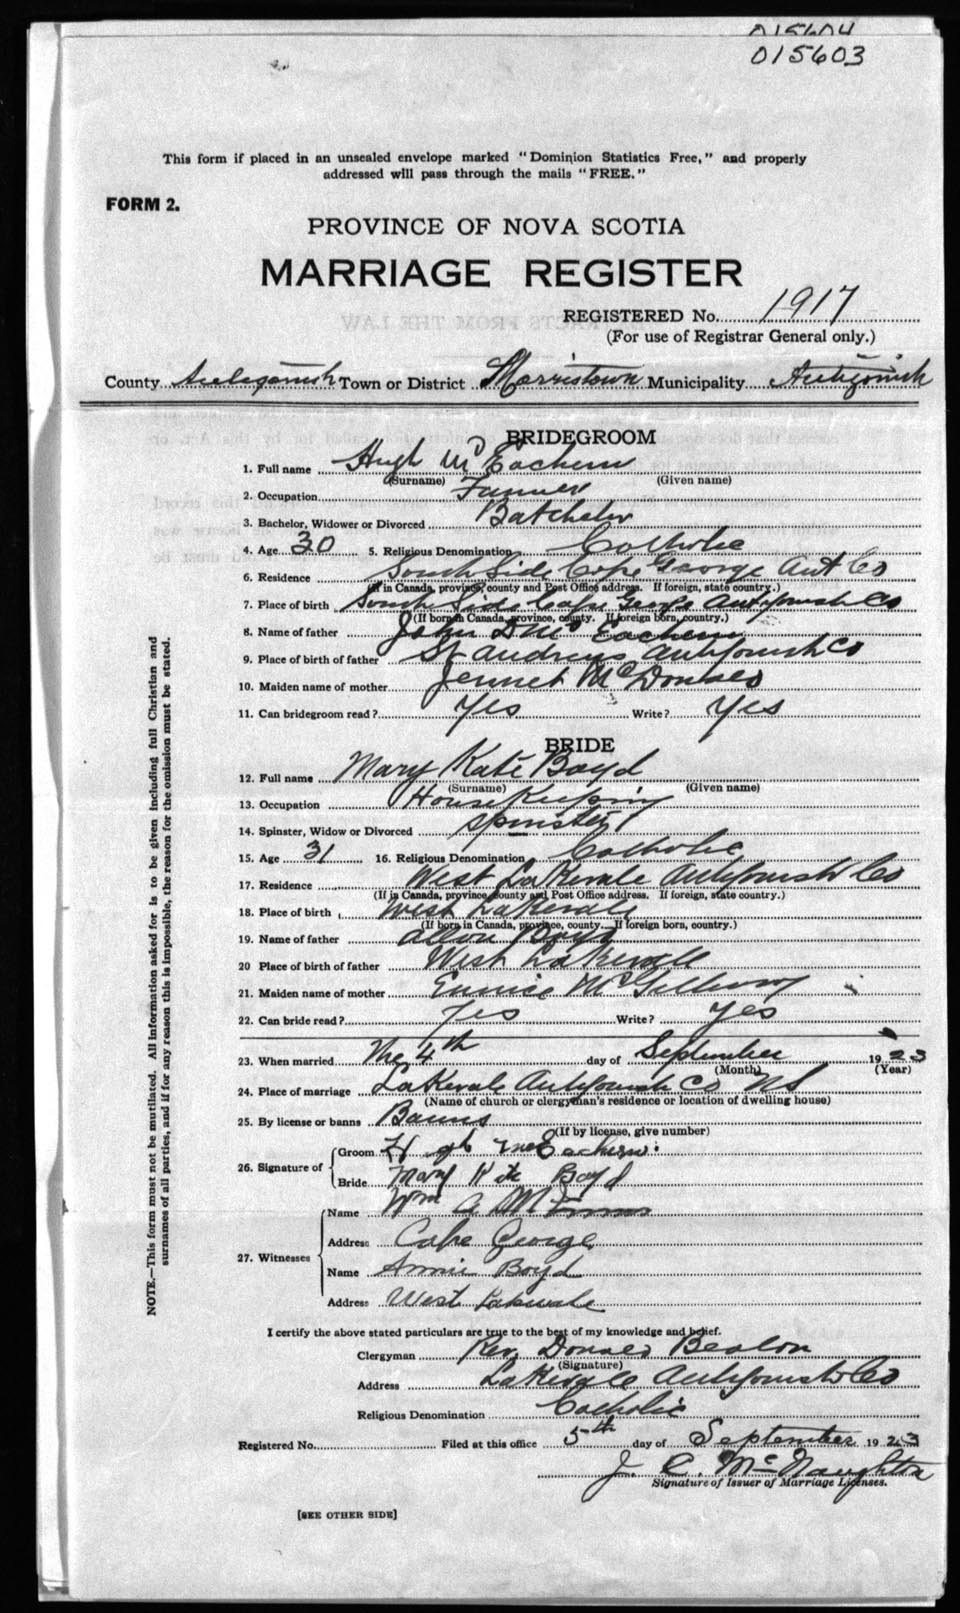 015604
015603
This form if placed in an unsealed envelope marked "Dominion Statistics Free," and properly
addressed will pass through the mails "FREE."
FORM 2.
PROVINCE OF NOVA SCOTIA
MARRIAGE REGISTER
REGISTERED No. 1917
(For use of Registrar General only.)
County Antigonish Town or District Morristown Municipality Antigonish
BRIDEGROOM
1. Full name Hugh McEachern
(Surname) (Given name)
2. Occupation Farmer
3. Bachelor, Widower or Divorced Batchelor
4. Age 30 5. Religious Denomination Catholic
6. Residence South Side Cape George Ant Co
(If in Canada, province, county and Post Office address. If foreign, state country.)
7. Place of birth South Side Cape George Antigonish Co
(If born in Canada, province, county. If foreign born, country.)
8. Name of father John D McEachern
9. Place of birth of father St Andrews Antigonish Co
10. Maiden name of mother Jennet McDonald
11. Can bridegroom read? Yes Write? Yes
BRIDE
12. Full name Mary Kate Boyd
(Surname) (Given name)
13. Occupation House Keeping
14. Spinster, Widow or Divorced Spinster
15. Age 31 16. Religious Denomination Catholic
17. Residence West Lakevale Antigonish Co
(If in Canada, province, county and Post Office address. If foreign, state country.)
18. Place of birth West Lakevale
(If born in Canada, province, county. If foreign born, country.)
19. Name of father Boyd
20 Place of birth of father West Lakevale
21. Maiden name of mother Eunice McGillivray
22. Can bride read? Yes Write? Yes
23. When married The 4th day of September 1923
(Month) (Year)
24. Place of marriage Lakevale Antigonish Co NS
(Name of church or clergyman's residence or location of dwelling house)
25. By license or banns Banns
(If by license, give number)
26. Signature of
Groom Hugh McEachern
Bride Mary Kate Boyd
27. Witnesses
Name Wm A
Address Cape George
Name Annie Boyd
Address West Lakevale
I certify the above stated particulars are true to the best of my knowledge and belief.
Clergyman Rev Donald Beaton
(Signature)
Address Lakevale Antigonish Co
Religious Denomination Catholic
Registered No. Filed at this office 5th day of September 1923
J. C. McNaughton
Signature of Issuer of Marriage Licenses.
[SEE OTHER SIDE]
NOTE.—This form must not be mutilated. All information asked for is to be given including full Christian and
surnames of all parties, and if for any reason this is impossible, the reason for the omission must be stated.